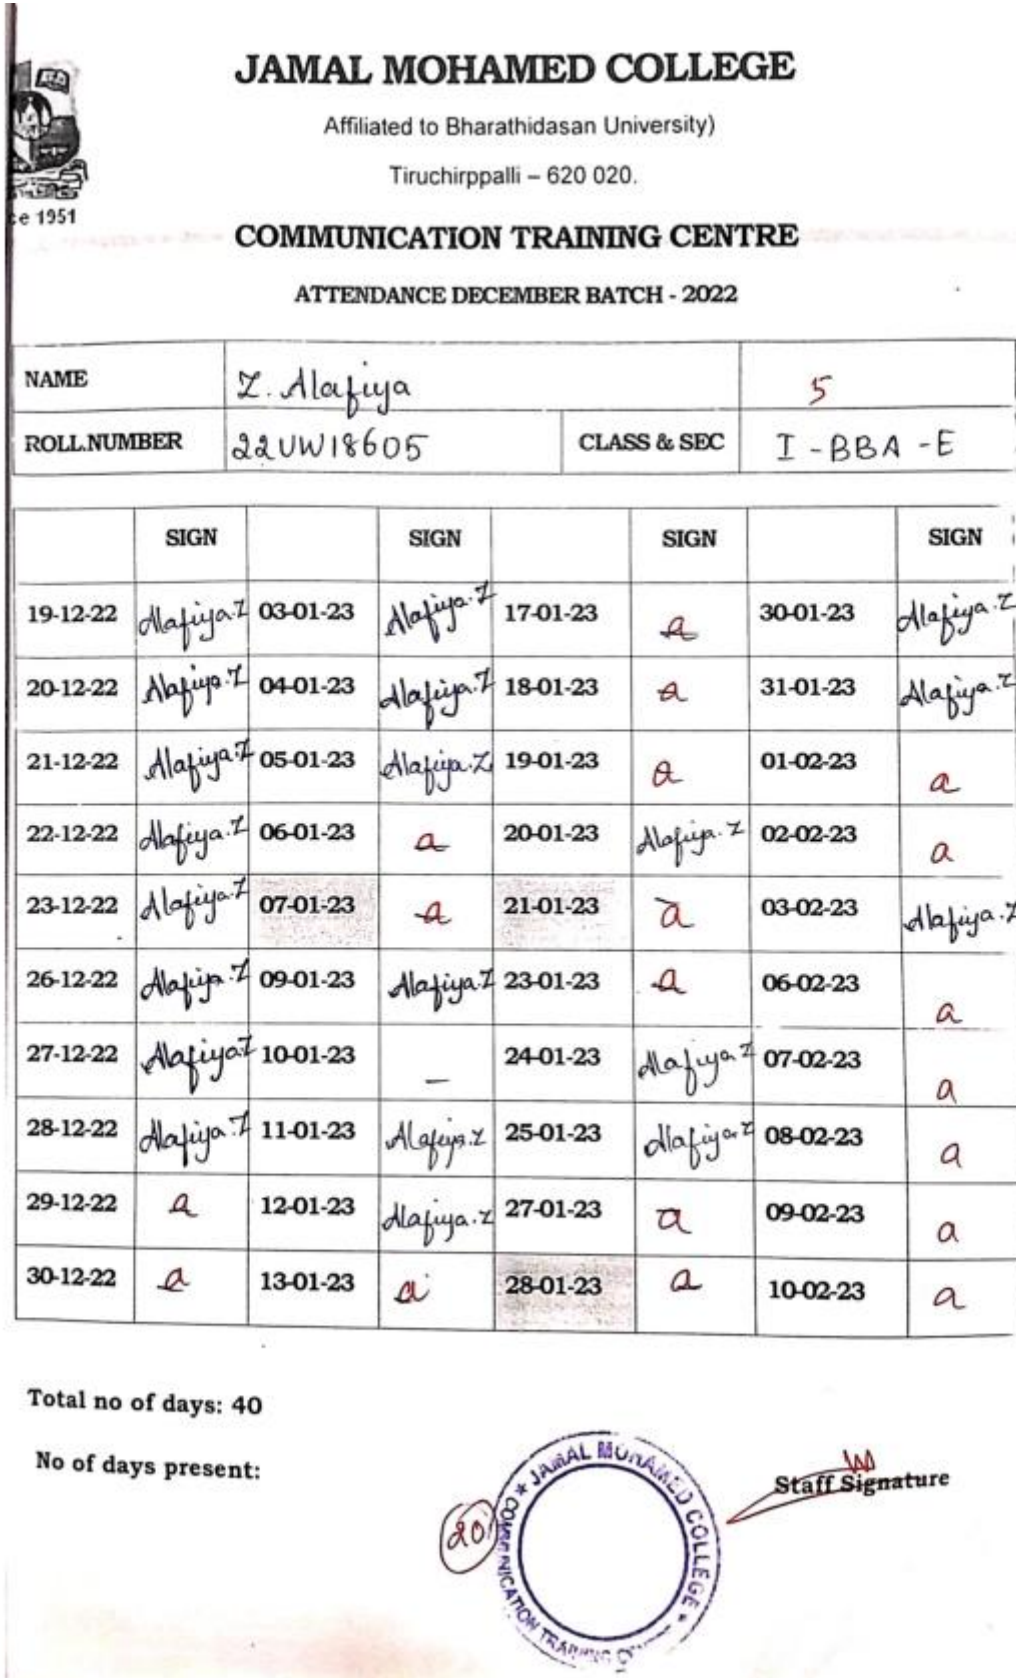 JAMAL MOHAMED COLLEGE
Affiliated to Bharathidasan University)
Tiruchirppalli – 620 020.
ce 1951
COMMUNICATION TRAINING CENTRE
ATTENDANCE DECEMBER BATCH - 2022
NAME Z. Alafiya 5
ROLL.NUMBER 22UW18605 CLASS & SEC I - BBA - E
SIGN SIGN SIGN SIGN
19-12-22 Alafiya.Z 03-01-23 Alafiya.Z 17-01-23 a 30-01-23 Alafiya.Z
20-12-22 Alafiya.Z 04-01-23 Alafiya.Z 18-01-23 a 31-01-23 Alafiya.Z
21-12-22 Alafiya.Z 05-01-23 Alafiya.Z 19-01-23 a 01-02-23 a
22-12-22 Alafiya.Z 06-01-23 a 20-01-23 Alafiya.Z 02-02-23 a
23-12-22 Alafiya.Z 07-01-23 a 21-01-23 a 03-02-23 Alafiya.Z
26-12-22 Alafiya.Z 09-01-23 Alafiya.Z 23-01-23 a 06-02-23 a
27-12-22 Alafiya.Z 10-01-23 – 24-01-23 Alafiya.Z 07-02-23 a
28-12-22 Alafiya.Z 11-01-23 Alafiya.Z 25-01-23 Alafiya.Z 08-02-23 a
29-12-22 a 12-01-23 Alafiya.Z 27-01-23 a 09-02-23 a
30-12-22 a 13-01-23 a 28-01-23 a 10-02-23 a
Total no of days: 40
No of days present:
20
JAMAL MOHAMED COLLEGE
COMMUNICATION TRAINING
Staff Signature